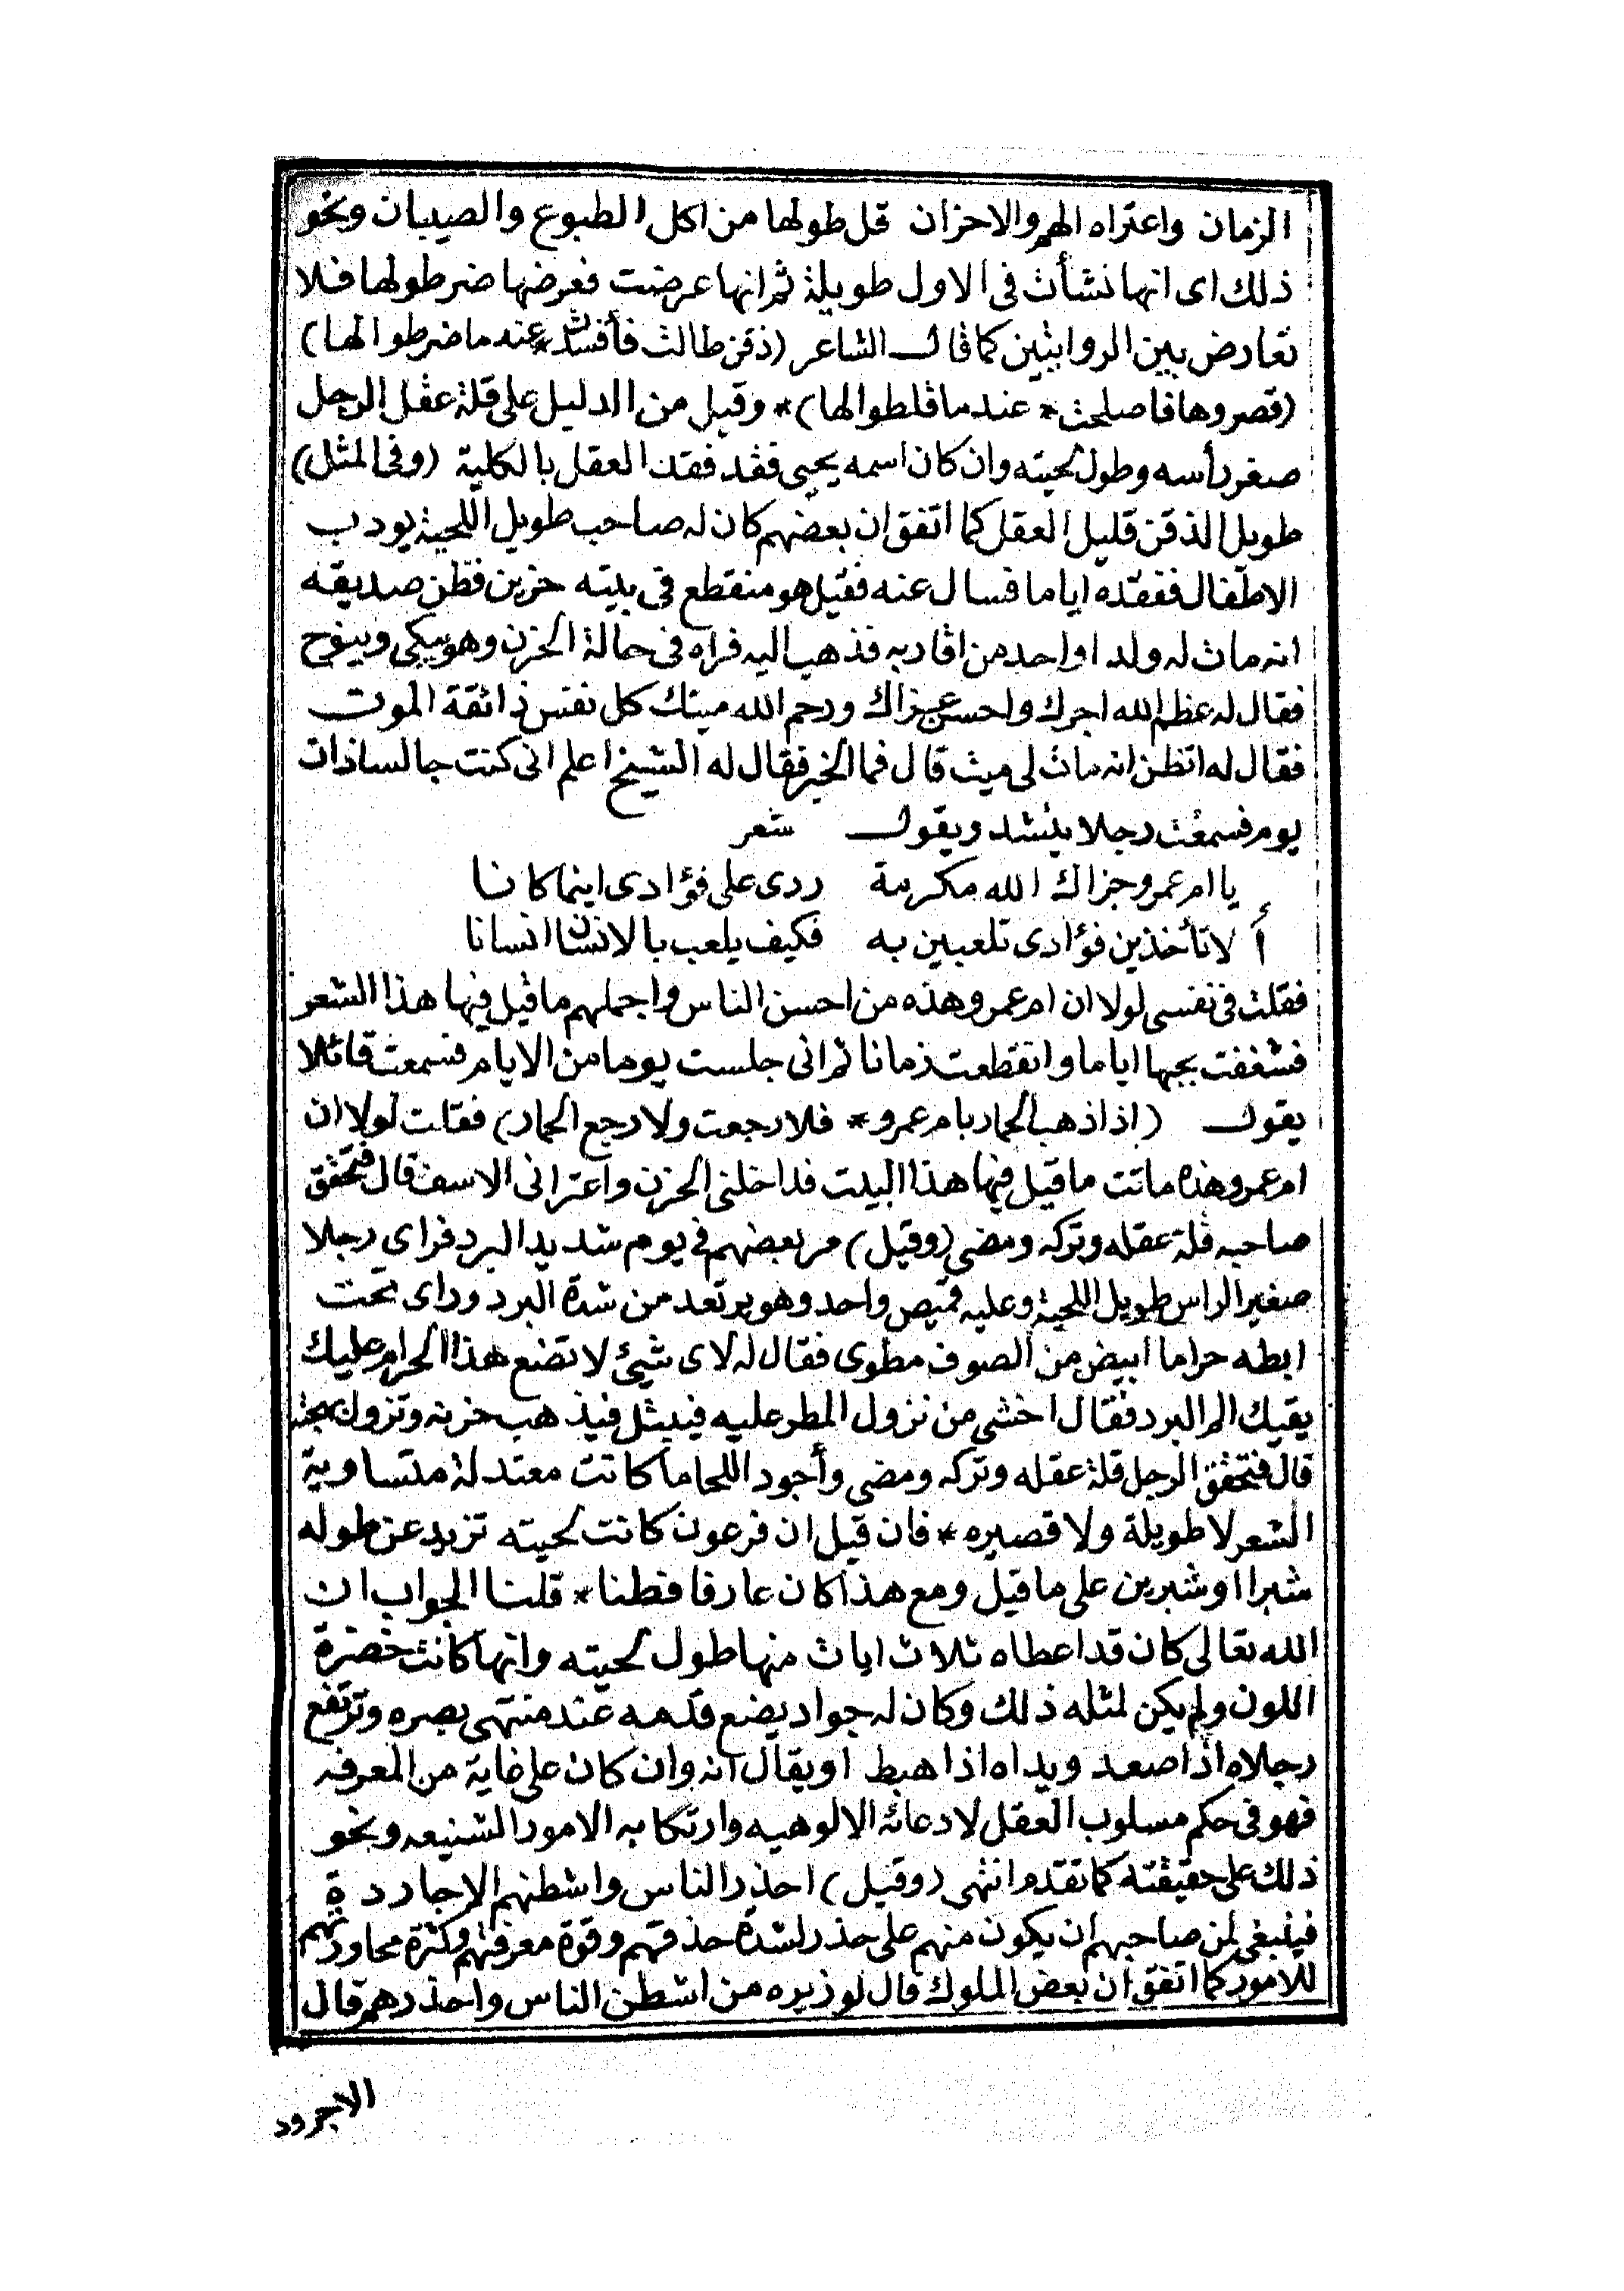 الزمان واعتراه الهم والاحزان قل طولها من اكل الطبوع والصيبان ونحو
ذلك اى انها نشأت فى الاول طويلة ثم انها عرضت فعرضها ضر طولها فلا
تعارض بين الروايتين كما قال الشاعر (ذقن طالت فأفسدت * عنه ما ضرطوا لها)
(قصروها فاصلحت * عند ما قلطوا لها) * وقيل من الدليل على قلة عقل الرجل
صغر رأسه وطول لحيته وان كان اسمه يحيى فقد فقد العقل بالكلية (وفى المثل)
طويل الذقن قليل العقل كما اتفق ان بعضهم كان له صاحب طويل اللحية يودب
الاطفال ففقده اياما فسال عنه فقيل هو منقطع فى بيته حزين فظن صديقه
انه مات له ولد او احد من اقاربه فذهب اليه فراه فى حالة الحزن وهو يبكى وينوح
فقال له عظم الله اجرك واحسن عزاك ورحم الله ميتك كل نفس ذائقة الموت
فقال له اتظن انه مات لى ميت قال فما الخبر فقال له الشيخ اعلم انى كنت جالسا ذات
يوم فسمعت رجلا ينشد ويقول شعر
يا ام عمرو جزاك الله مكرمة ردى على فؤادى اينما كانا
أ لا تأخذين فؤادى تلعبين به فكيف يلعب بالانسان انسانا
فقلت فى نفسى لولا ان ام عمرو هذه من احسن الناس واجملهم ما قيل فيها هذا الشعر
فشغفت بحبها اياما وانقطعت زمانا ثم انى جلست يوما من الايام فسمعت قائلا
يقول (اذا ذهب الحمار بام عمرو * فلا رجعت ولا رجع الحمار) فقلت لولا ان
ام عمرو هذه ماتت ما قيل فيها هذا البيت فداخلنى الحزن واعترانى الاسف قال فتحقق
صاحبه قلة عقله وتركه ومضى (وقيل) مر بعضهم فى يوم شديد البرد فراي رجلا
صغير الراس طويل اللحية وعليه قميص واحد وهو يرتعد من شدة البرد وراى تحت
ابطه حراما ابيض من الصوف مطوى فقال له لاى شيئ لا تضع هذا الحرام عليك
يقيك الم البرد فقال اخشى من نزول المطر عليه فيبتل فيذهب حزينه وتزول بهجته
قال فتحقق الرجل قلة عقله وتركه ومضى وأجود اللحا ما كانت معتدلة متساوية
الشعر لا طويلة ولا قصيره * فان قيل ان فرعون كانت لحيته تزيد عن طوله
شبرا او شبرين على ما قيل ومع هذا كان عارفا فطنا * قلنا الجواب ان
الله تعالى كان قد اعطاه ثلاث ايات منها طول لحيته وانها كانت خضرة
اللون ولم يكن لمثله ذلك وكان له جواد يضع قدمه عند منتهى بصره وترتفع
رجلاه اذا صعد ويداه اذا هبط او يقال انه وان كان على غاية من المعرفه
فهو فى حكم مسلوب العقل لادعائه الالوهيه وارتكابه الامور الشنيعه ونحو
ذلك على حقيقته كما تقدم انتهى (وقيل) احذر الناس واشطنهم الاجاردة
فينبغى لمن صاحبهم ان يكون منهم على حذر لشدة حذقهم وقوة معرفتهم وكثرة محاورتهم
للامور كما اتفق ان بعض الملوك قال لوزيره من اشطن الناس واحذرهم قال
الاجرود